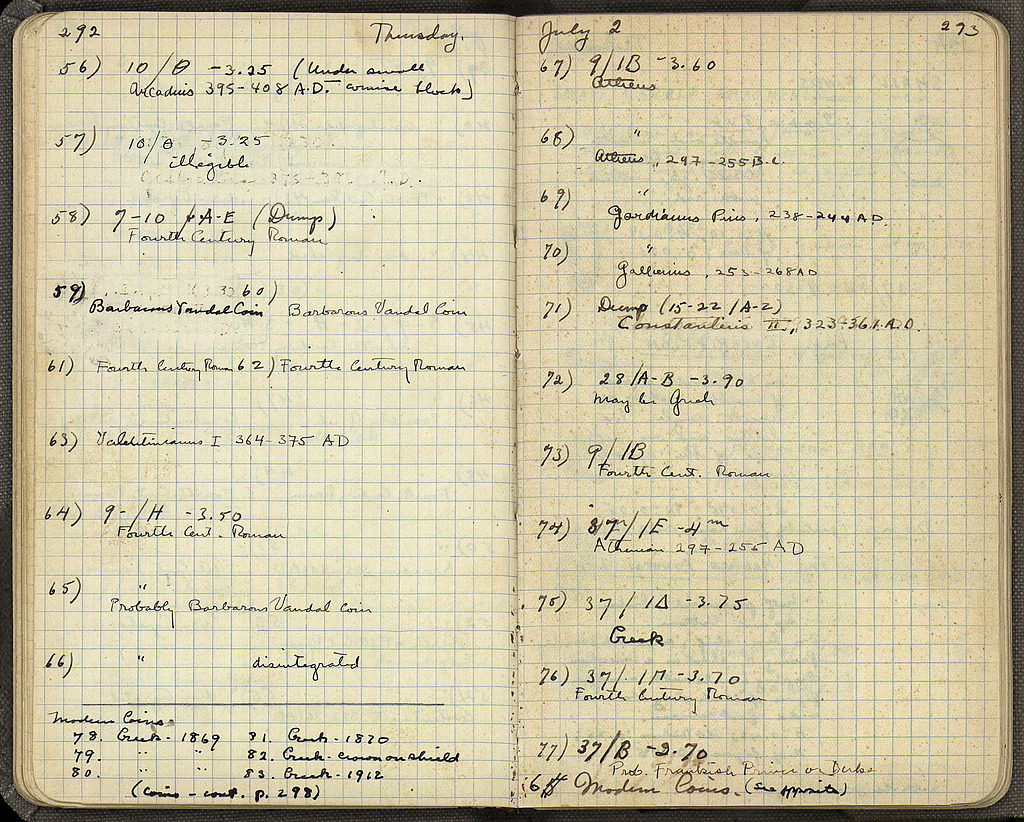 292 Thursday,
56) 10/Θ -3.25 (Under small
Arcadius 395-408 A.D. cornice block)
57) 10/Θ -3.25
illegible
58) 7-10 / A-E (Dump)
Fourth Century Roman
59) 60)
Barbarous Vandal Coin Barbarous Vandal Coin
61) Fourth Century Roman 62) Fourth Century Roman
63) Valentinianus I 364-375 AD
64) 9-/H -3.50
Fourth Cent. Roman
65) "
Probably Barbarous Vandal Coin
66) " disintegrated
Modern Coins-
78. Greek-1869 81. Greek-1870
79. " " 82. Greek-crown on shield
80. " " 83. Greek-1912
(Coins - cont. p. 298)
July 2 293
67) 9/IB -3.60
Athens
68) "
Athens, 297-255 B.C.
69) "
Gordianus Pius, 238-244 AD.
70) "
Gallienus, 253-268 AD
71) Dump (15-22/A-Z)
Constantius II, 323-361 A.D.
72) 28/A-B -3.90
may be Greek
73) 9/IB
Fourth Cent. Roman
74) 37/IE -4m
Athenian 297-255 AD
75) 37/IΔ -3.75
Greek
76) 37/ -3.70
Fourth Century Roman
77) 37/B -2.70
Prob. Frankish Prince or Duke
6 Modern Coins. (see opposite)